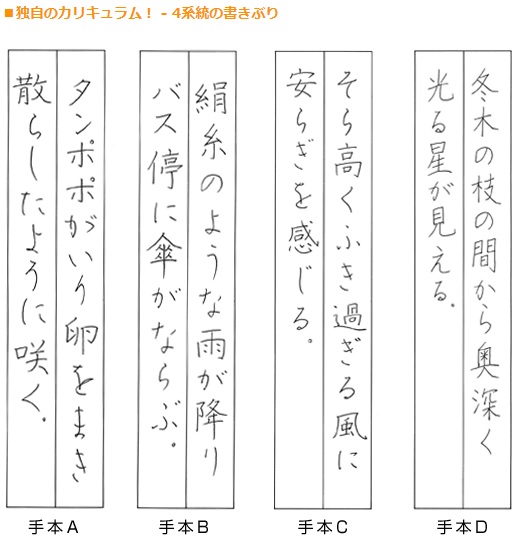 ■独自のカリキュラム！ - 4系統の書きぶり
タンポポがいり卵をまき
散らしたように咲く。
手本A
絹糸のような雨が降り
バス停に傘がならぶ。
手本B
そら高くふき過ぎる風に
安らぎを感じる。
手本C
冬木の枝の間から奥深く
光る星が見える。
手本D